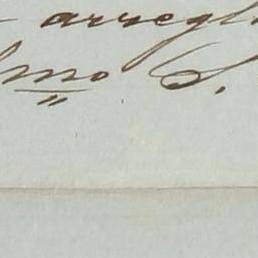 arregl
mo S.